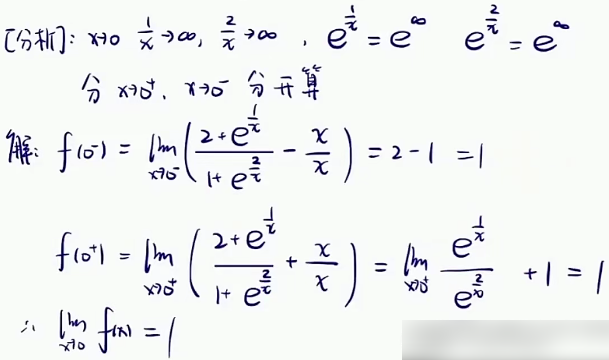 [分析]: x→0 1/x→∞, 2/x→∞ , e^(1/x) = e^∞ e^(2/x) = e^∞
分 x→0⁺, x→0⁻ 分开算
解: f(0⁻) = lim_(x→0⁻) ( (2+e^(1/x))/(1+e^(2/x)) - x/x ) = 2-1 = 1
f(0⁺) = lim_(x→0⁺) ( (2+e^(1/x))/(1+e^(2/x)) + x/x ) = lim_(x→0⁺) e^(1/x)/e^(2/x) + 1 = 1
∴ lim_(x→0) f(x) = 1